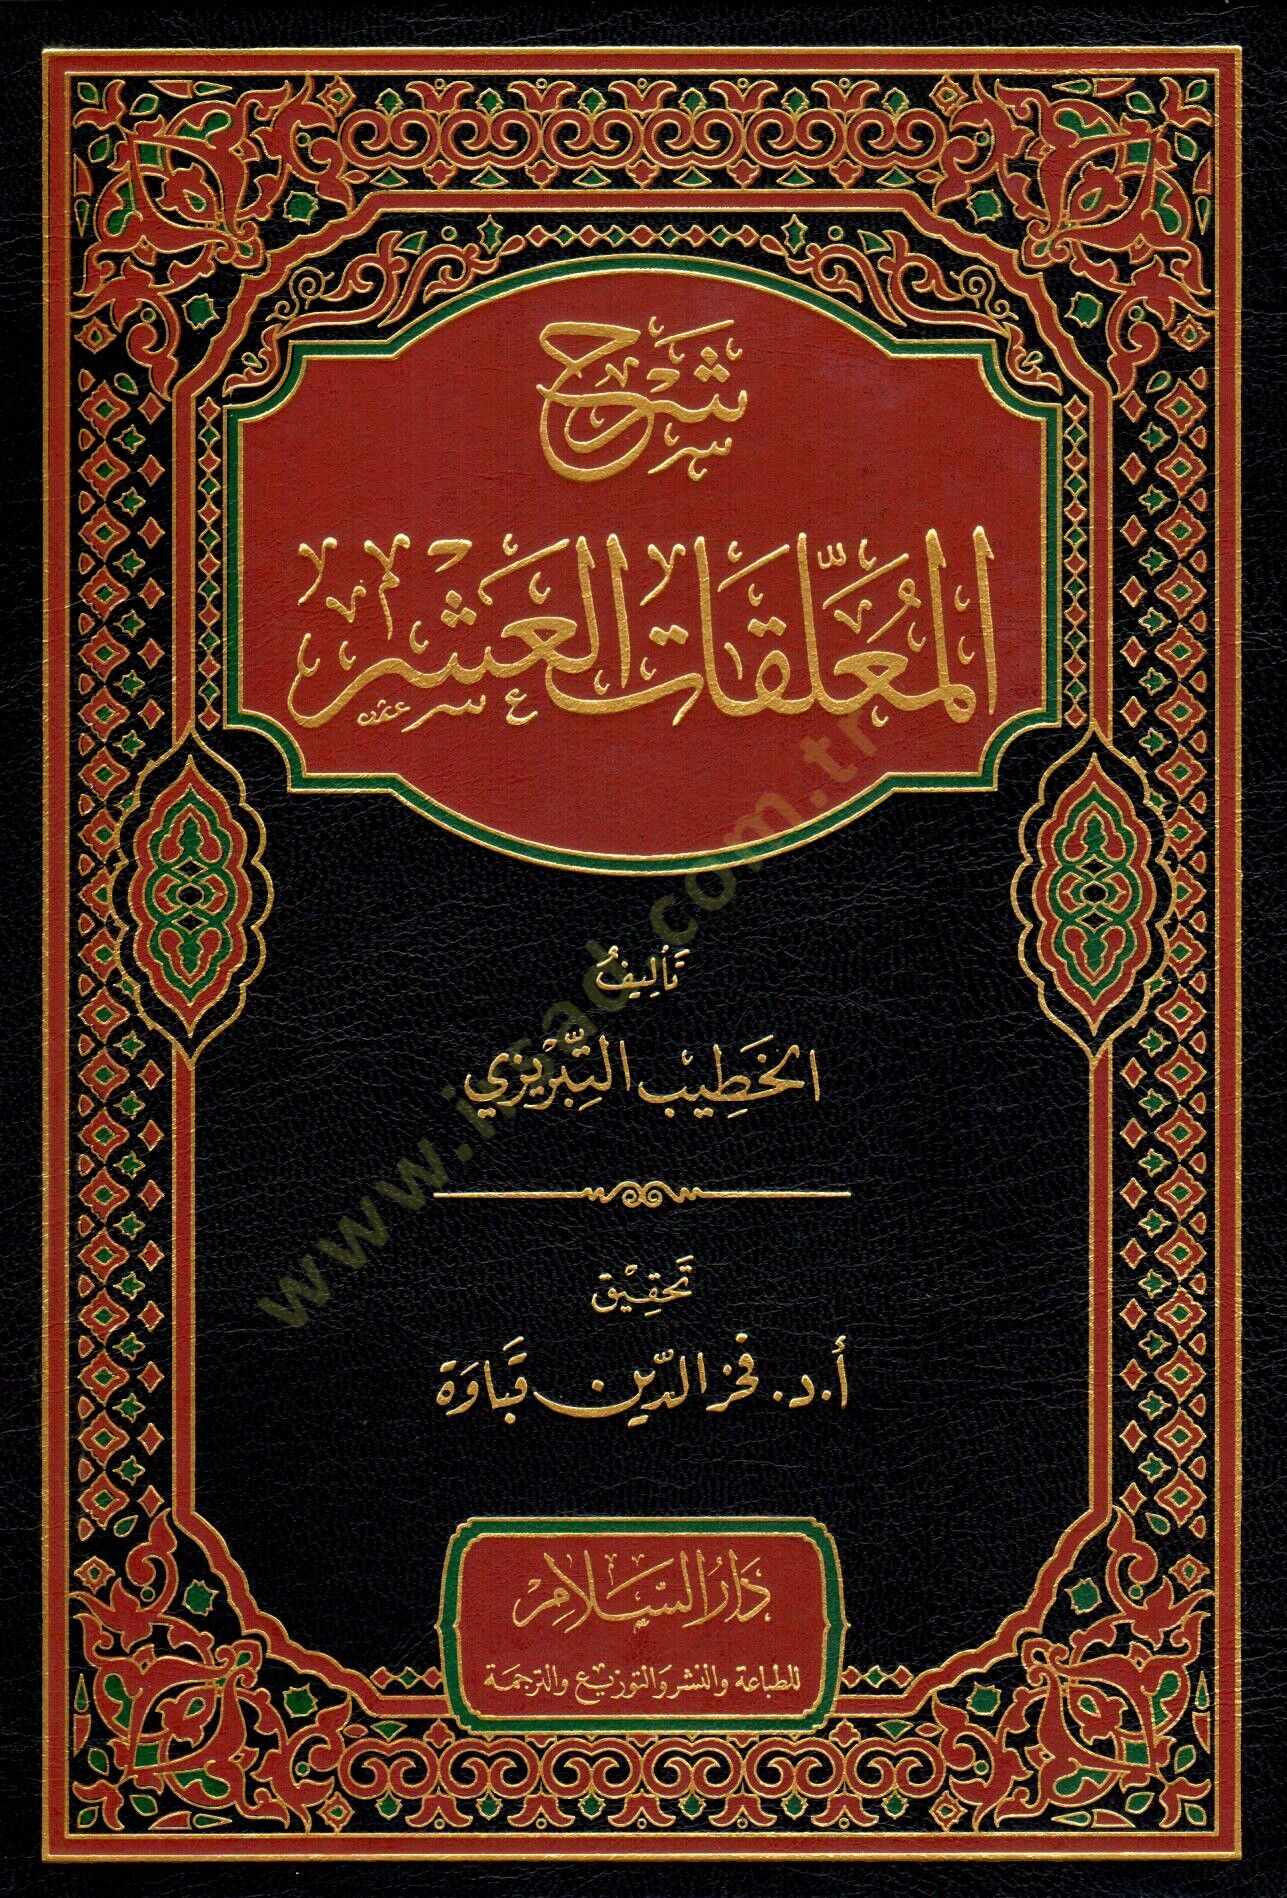 شَرْح
المُعَلَّقَات العَشْر
تَأليفُ
الخَطِيب التِّبْرِيزي
تَحْقِيق
أ.د. فَخْر الدِّين قَبَاوَة
دَارُ السَّلَامِ
للطباعة والنشر والتوزيع والترجمة
www.irsad.com.tr